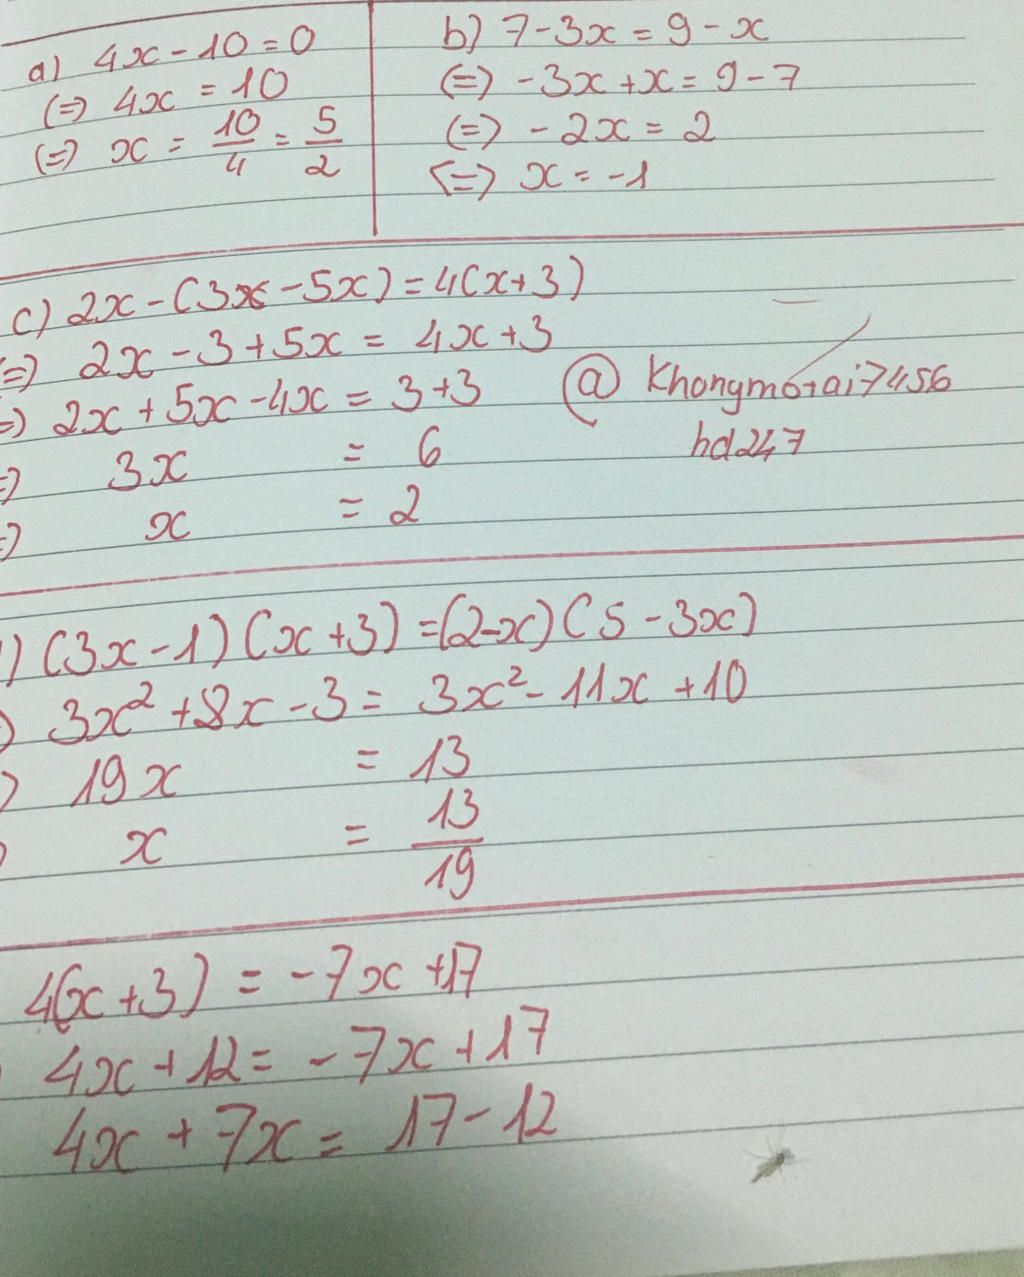 a) 4x - 10 = 0
(=) 4x = 10
(=) x = 10/4 = 5/2
b) 7 - 3x = 9 - x
(=) -3x + x = 9 - 7
(=) -2x = 2
(=) x = -1
c) 2x - (3x - 5x) = 4(x + 3)
=) 2x - 3 + 5x = 4x + 3
=) 2x + 5x - 4x = 3 + 3
=) 3x = 6
=) x = 2
@ Khongmotai7456
hd247
) (3x - 1)(x + 3) = (2 - x)(5 - 3x)
) 3x² + 8x - 3 = 3x² - 11x + 10
) 19x = 13
) x = 13/19
4(x + 3) = -7x + 17
4x + 12 = -7x + 17
4x + 7x = 17 - 12